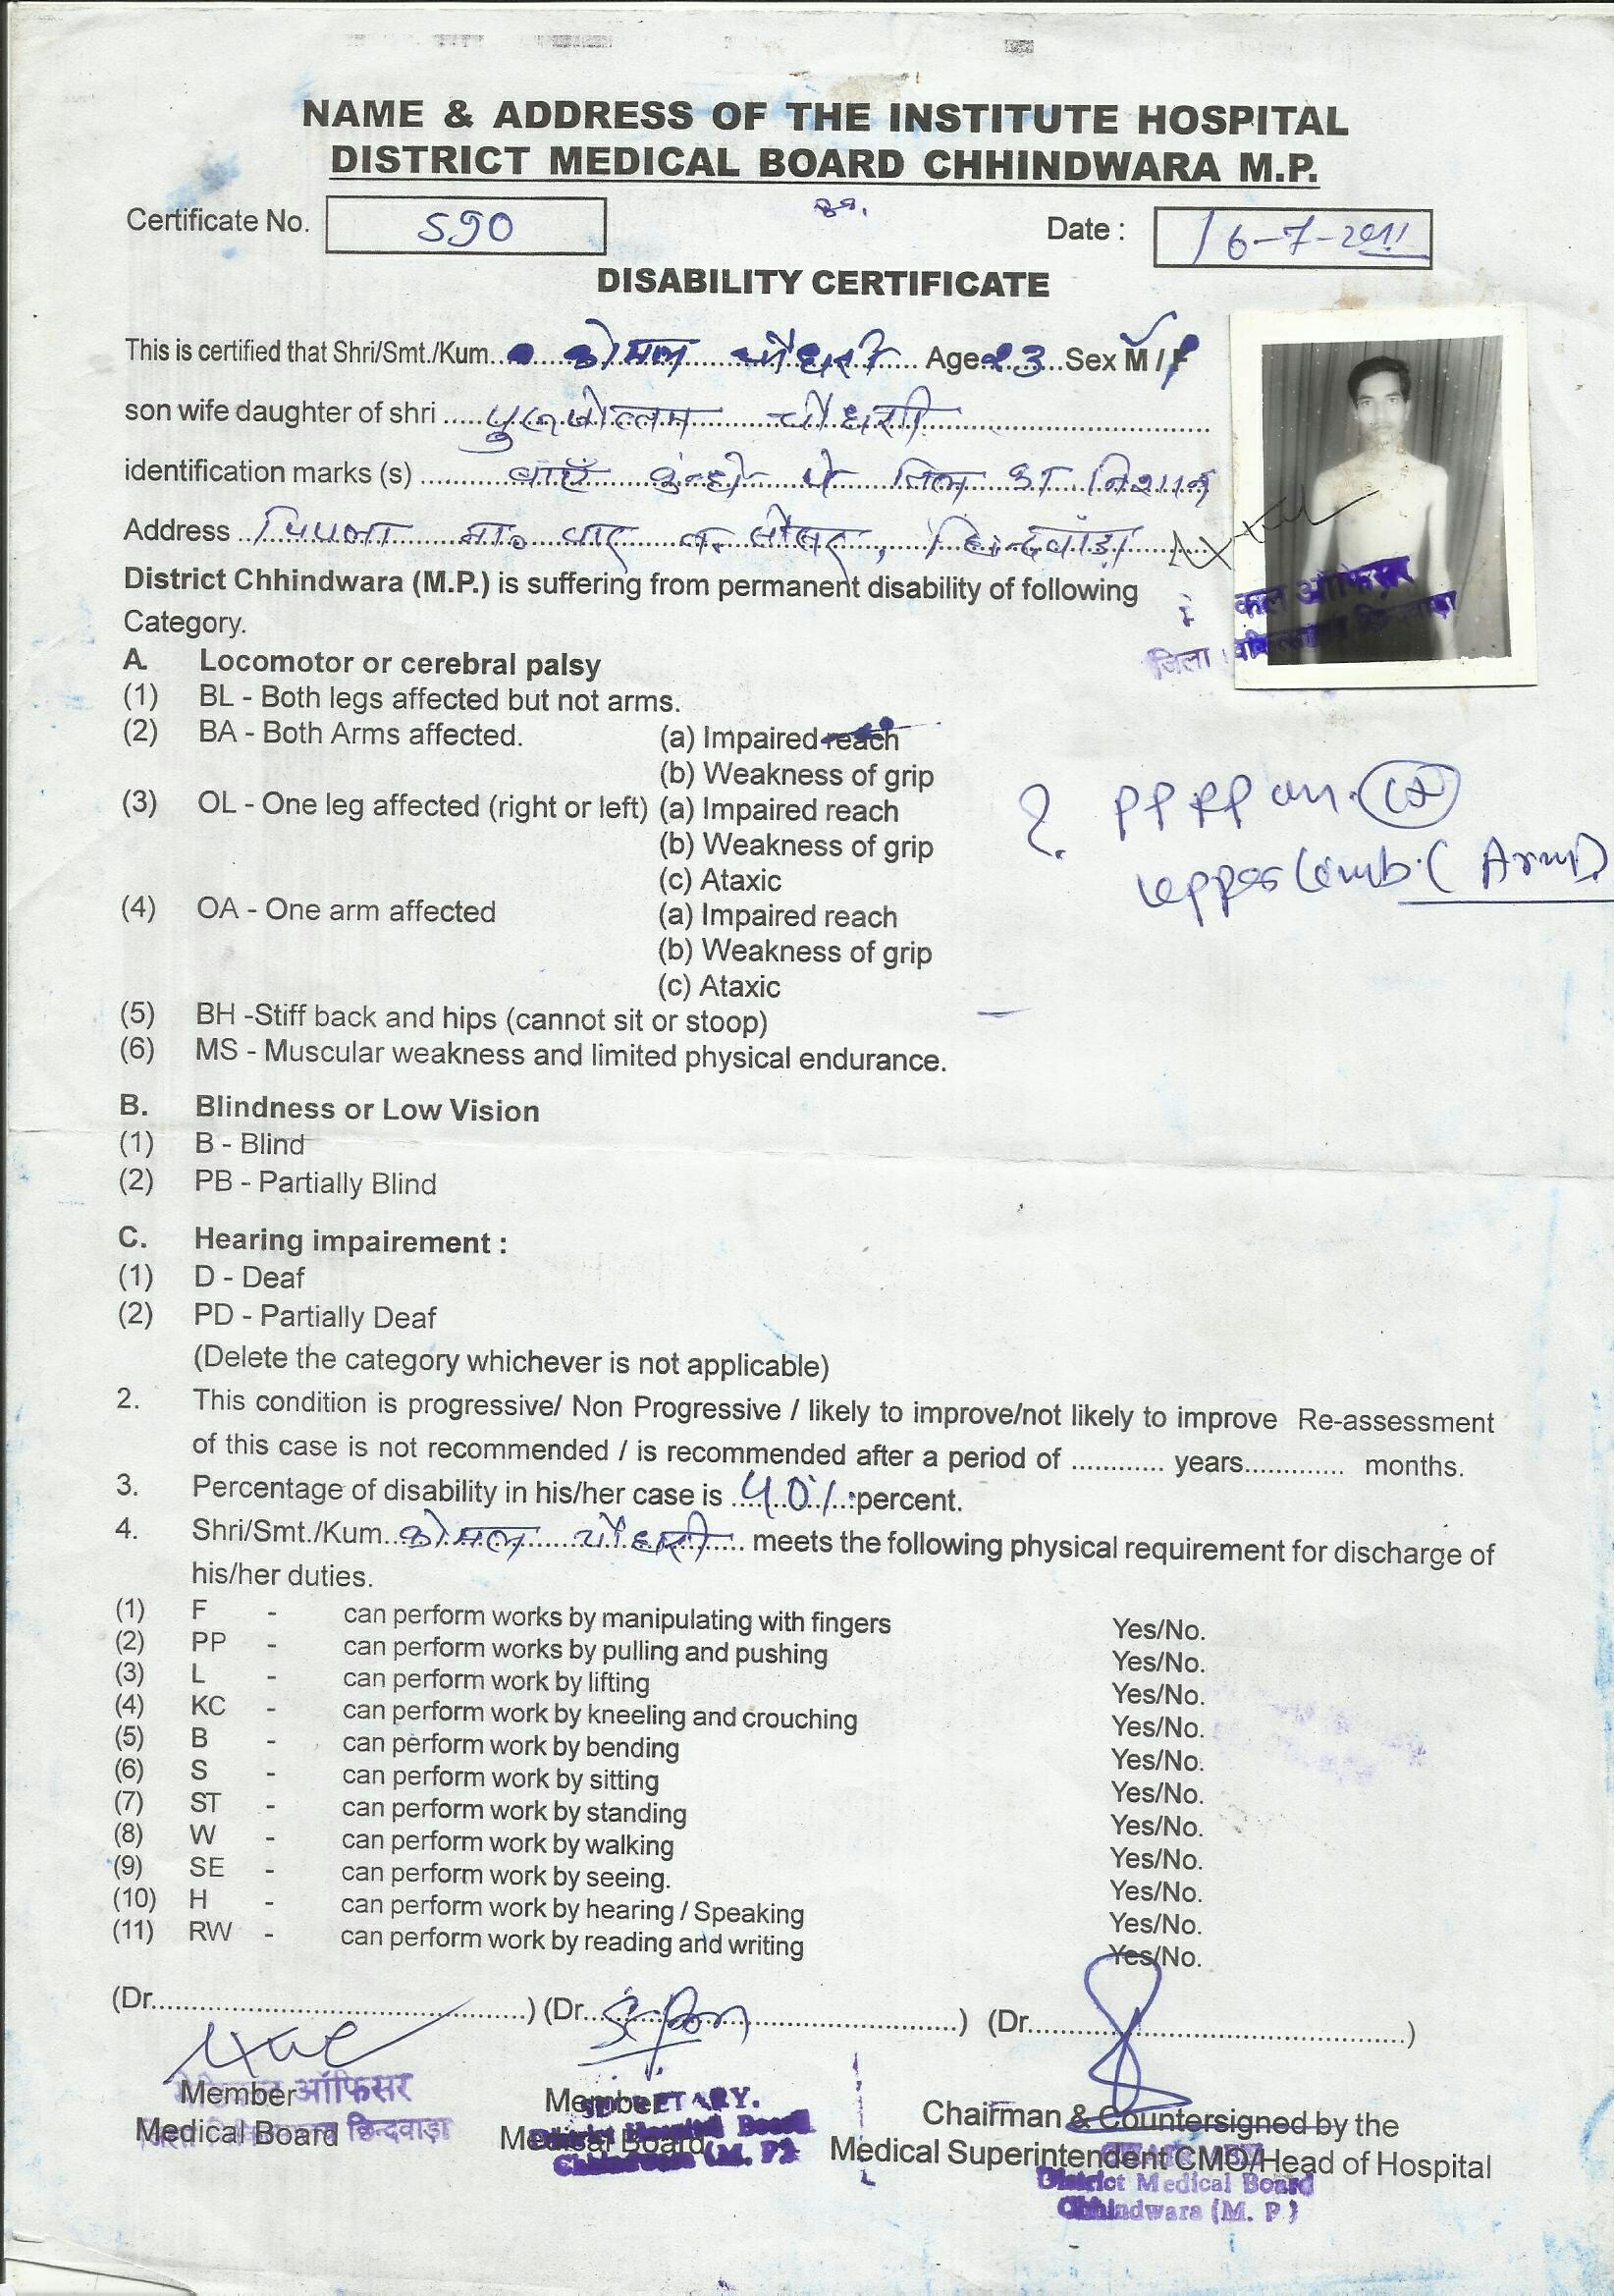 NAME & ADDRESS OF THE INSTITUTE HOSPITAL
DISTRICT MEDICAL BOARD CHHINDWARA M.P.
Certificate No. 590 Date : 16-7-2011
DISABILITY CERTIFICATE
This is certified that Shri/Smt./Kum. कोमल चौधरी Age 23 Sex M / F
son wife daughter of shri पुरूषोत्तम चौधरी
identification marks (s) तिल का निशान
Address पिपला छिन्दवाड़ा
District Chhindwara (M.P.) is suffering from permanent disability of following
Category.
जिला
A. Locomotor or cerebral palsy
(1) BL - Both legs affected but not arms.
(2) BA - Both Arms affected. (a) Impaired reach
(b) Weakness of grip
(3) OL - One leg affected (right or left) (a) Impaired reach
(b) Weakness of grip
(c) Ataxic
upper limb (Arm)
(4) OA - One arm affected (a) Impaired reach
(b) Weakness of grip
(c) Ataxic
(5) BH -Stiff back and hips (cannot sit or stoop)
(6) MS - Muscular weakness and limited physical endurance.
B. Blindness or Low Vision
(1) B - Blind
(2) PB - Partially Blind
C. Hearing impairement :
(1) D - Deaf
(2) PD - Partially Deaf
(Delete the category whichever is not applicable)
2. This condition is progressive/ Non Progressive / likely to improve/not likely to improve Re-assessment
of this case is not recommended / is recommended after a period of ............ years............. months.
3. Percentage of disability in his/her case is 40% percent.
4. Shri/Smt./Kum. कोमल चौधरी meets the following physical requirement for discharge of
his/her duties.
(1) F - can perform works by manipulating with fingers Yes/No.
(2) PP - can perform works by pulling and pushing Yes/No.
(3) L - can perform work by lifting Yes/No.
(4) KC - can perform work by kneeling and crouching Yes/No.
(5) B - can perform work by bending Yes/No.
(6) S - can perform work by sitting Yes/No.
(7) ST - can perform work by standing Yes/No.
(8) W - can perform work by walking Yes/No.
(9) SE - can perform work by seeing. Yes/No.
(10) H - can perform work by hearing / Speaking Yes/No.
(11) RW - can perform work by reading and writing Yes/No.
(Dr..............................) (Dr..............................) (Dr..............................)
Member Member Chairman & Countersigned by the
Medical Board Medical Board Medical Superintendent CMO/Head of Hospital
ऑफिसर
छिन्दवाड़ा
District Hospital Board
(M. P)
District Medical Board
Chhindwara (M. P.)